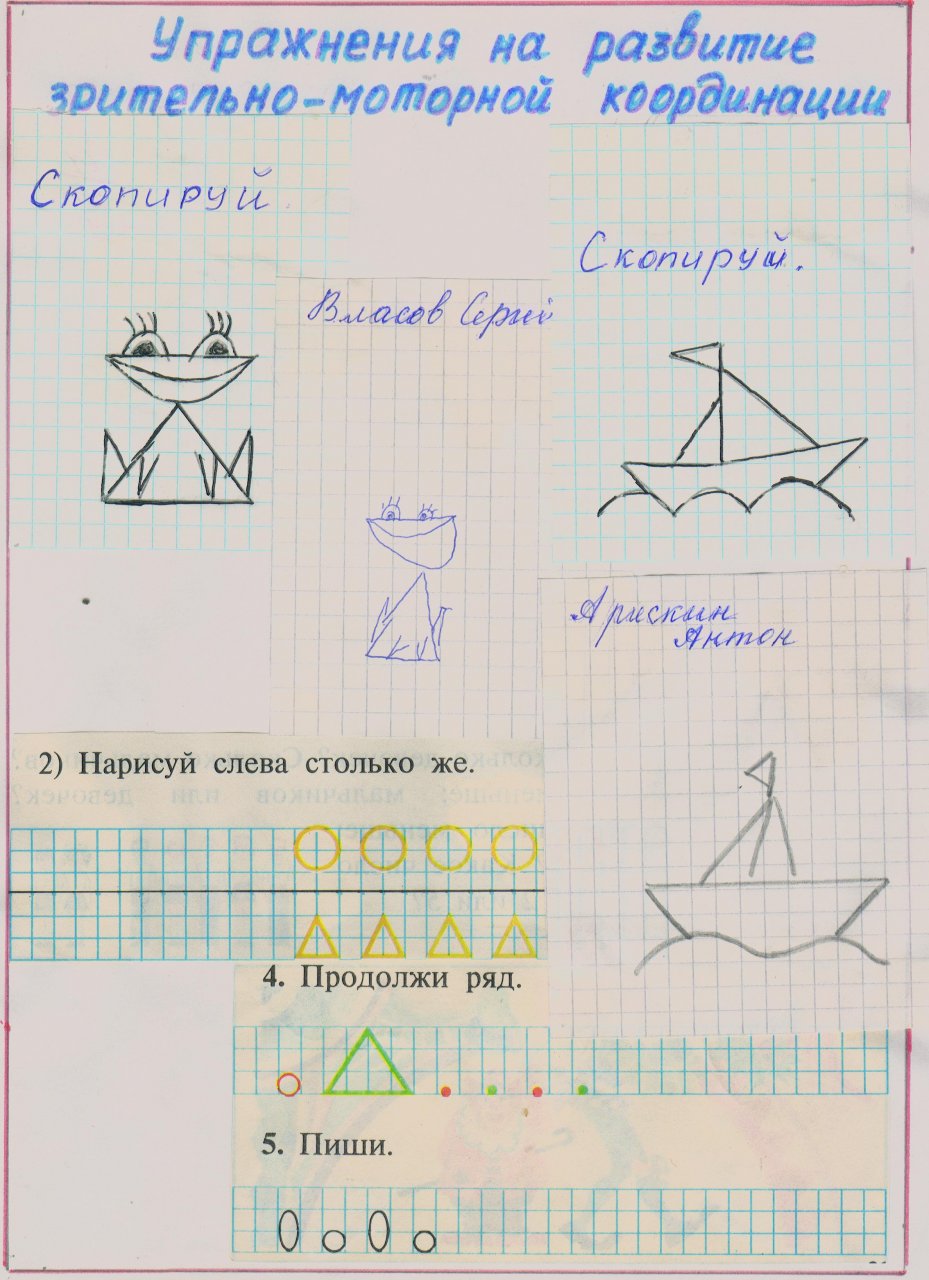 Упражнения на развитие
зрительно-моторной координации
Скопируй
Скопируй.
Власов Сергей
Арискин
Антон
2) Нарисуй слева столько же.
4. Продолжи ряд.
5. Пиши.